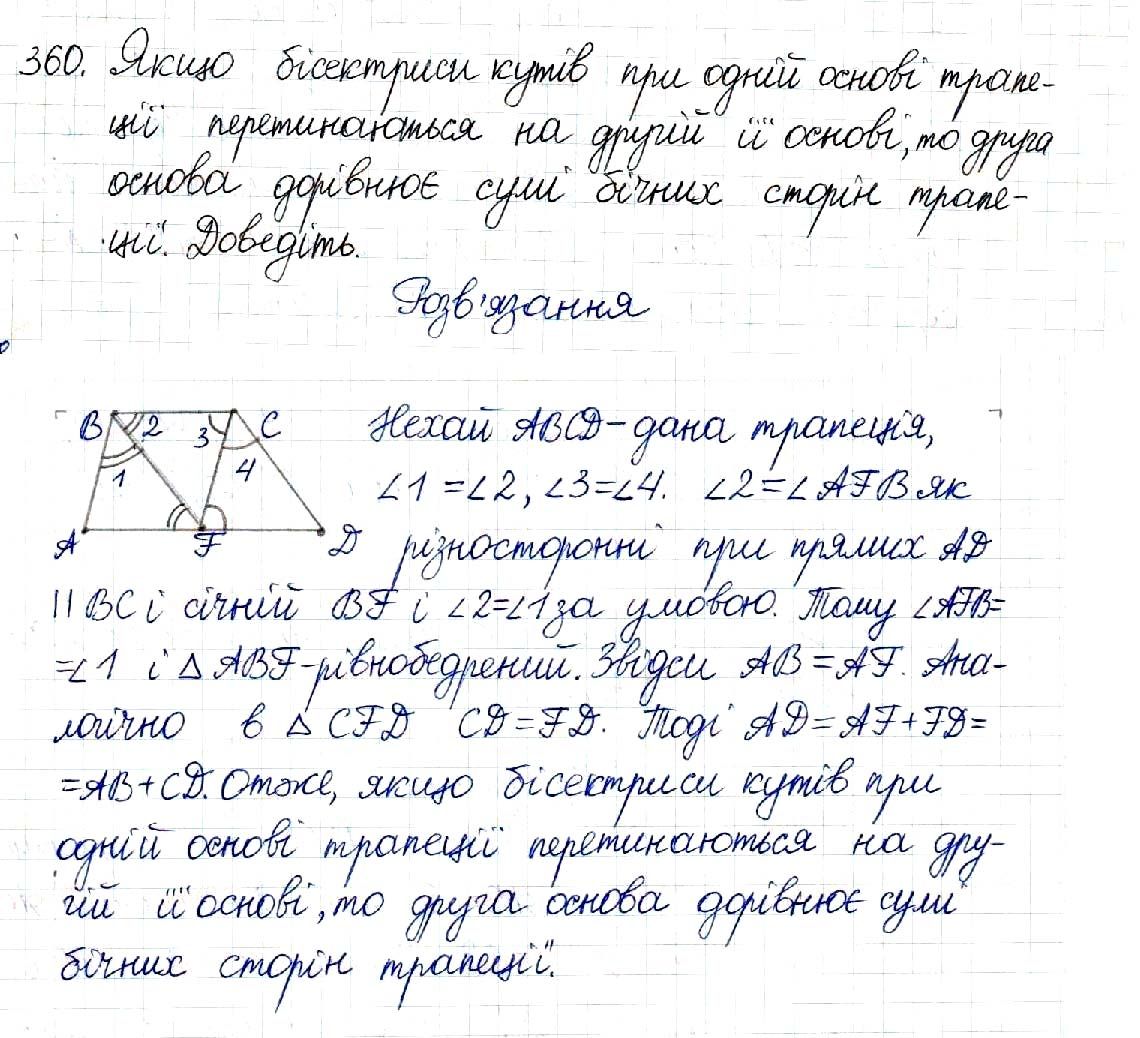 360. Якщо бісектриси кутів при одній основі трапе-
ції перетинаються на другій її основі, то друга
основа дорівнює сумі бічних сторін трапе-
ції. Доведіть.
Розв'язання
B 2 3 C
1 4
A F D
Нехай ABCD – дана трапеція,
∠1 = ∠2, ∠3 = ∠4. ∠2 = ∠AFB як
різносторонні при прямих AD
|| BC і січній BF і ∠2 = ∠1 за умовою. Тому ∠AFB =
= ∠1 і △ABF – рівнобедрений. Звідси AB = AF. Ана-
логічно в △CFD CD = FD. Тоді AD = AF + FD =
= AB + CD. Отже, якщо бісектриси кутів при
одній основі трапеції перетинаються на дру-
гій її основі, то друга основа дорівнює сумі
бічних сторін трапеції.